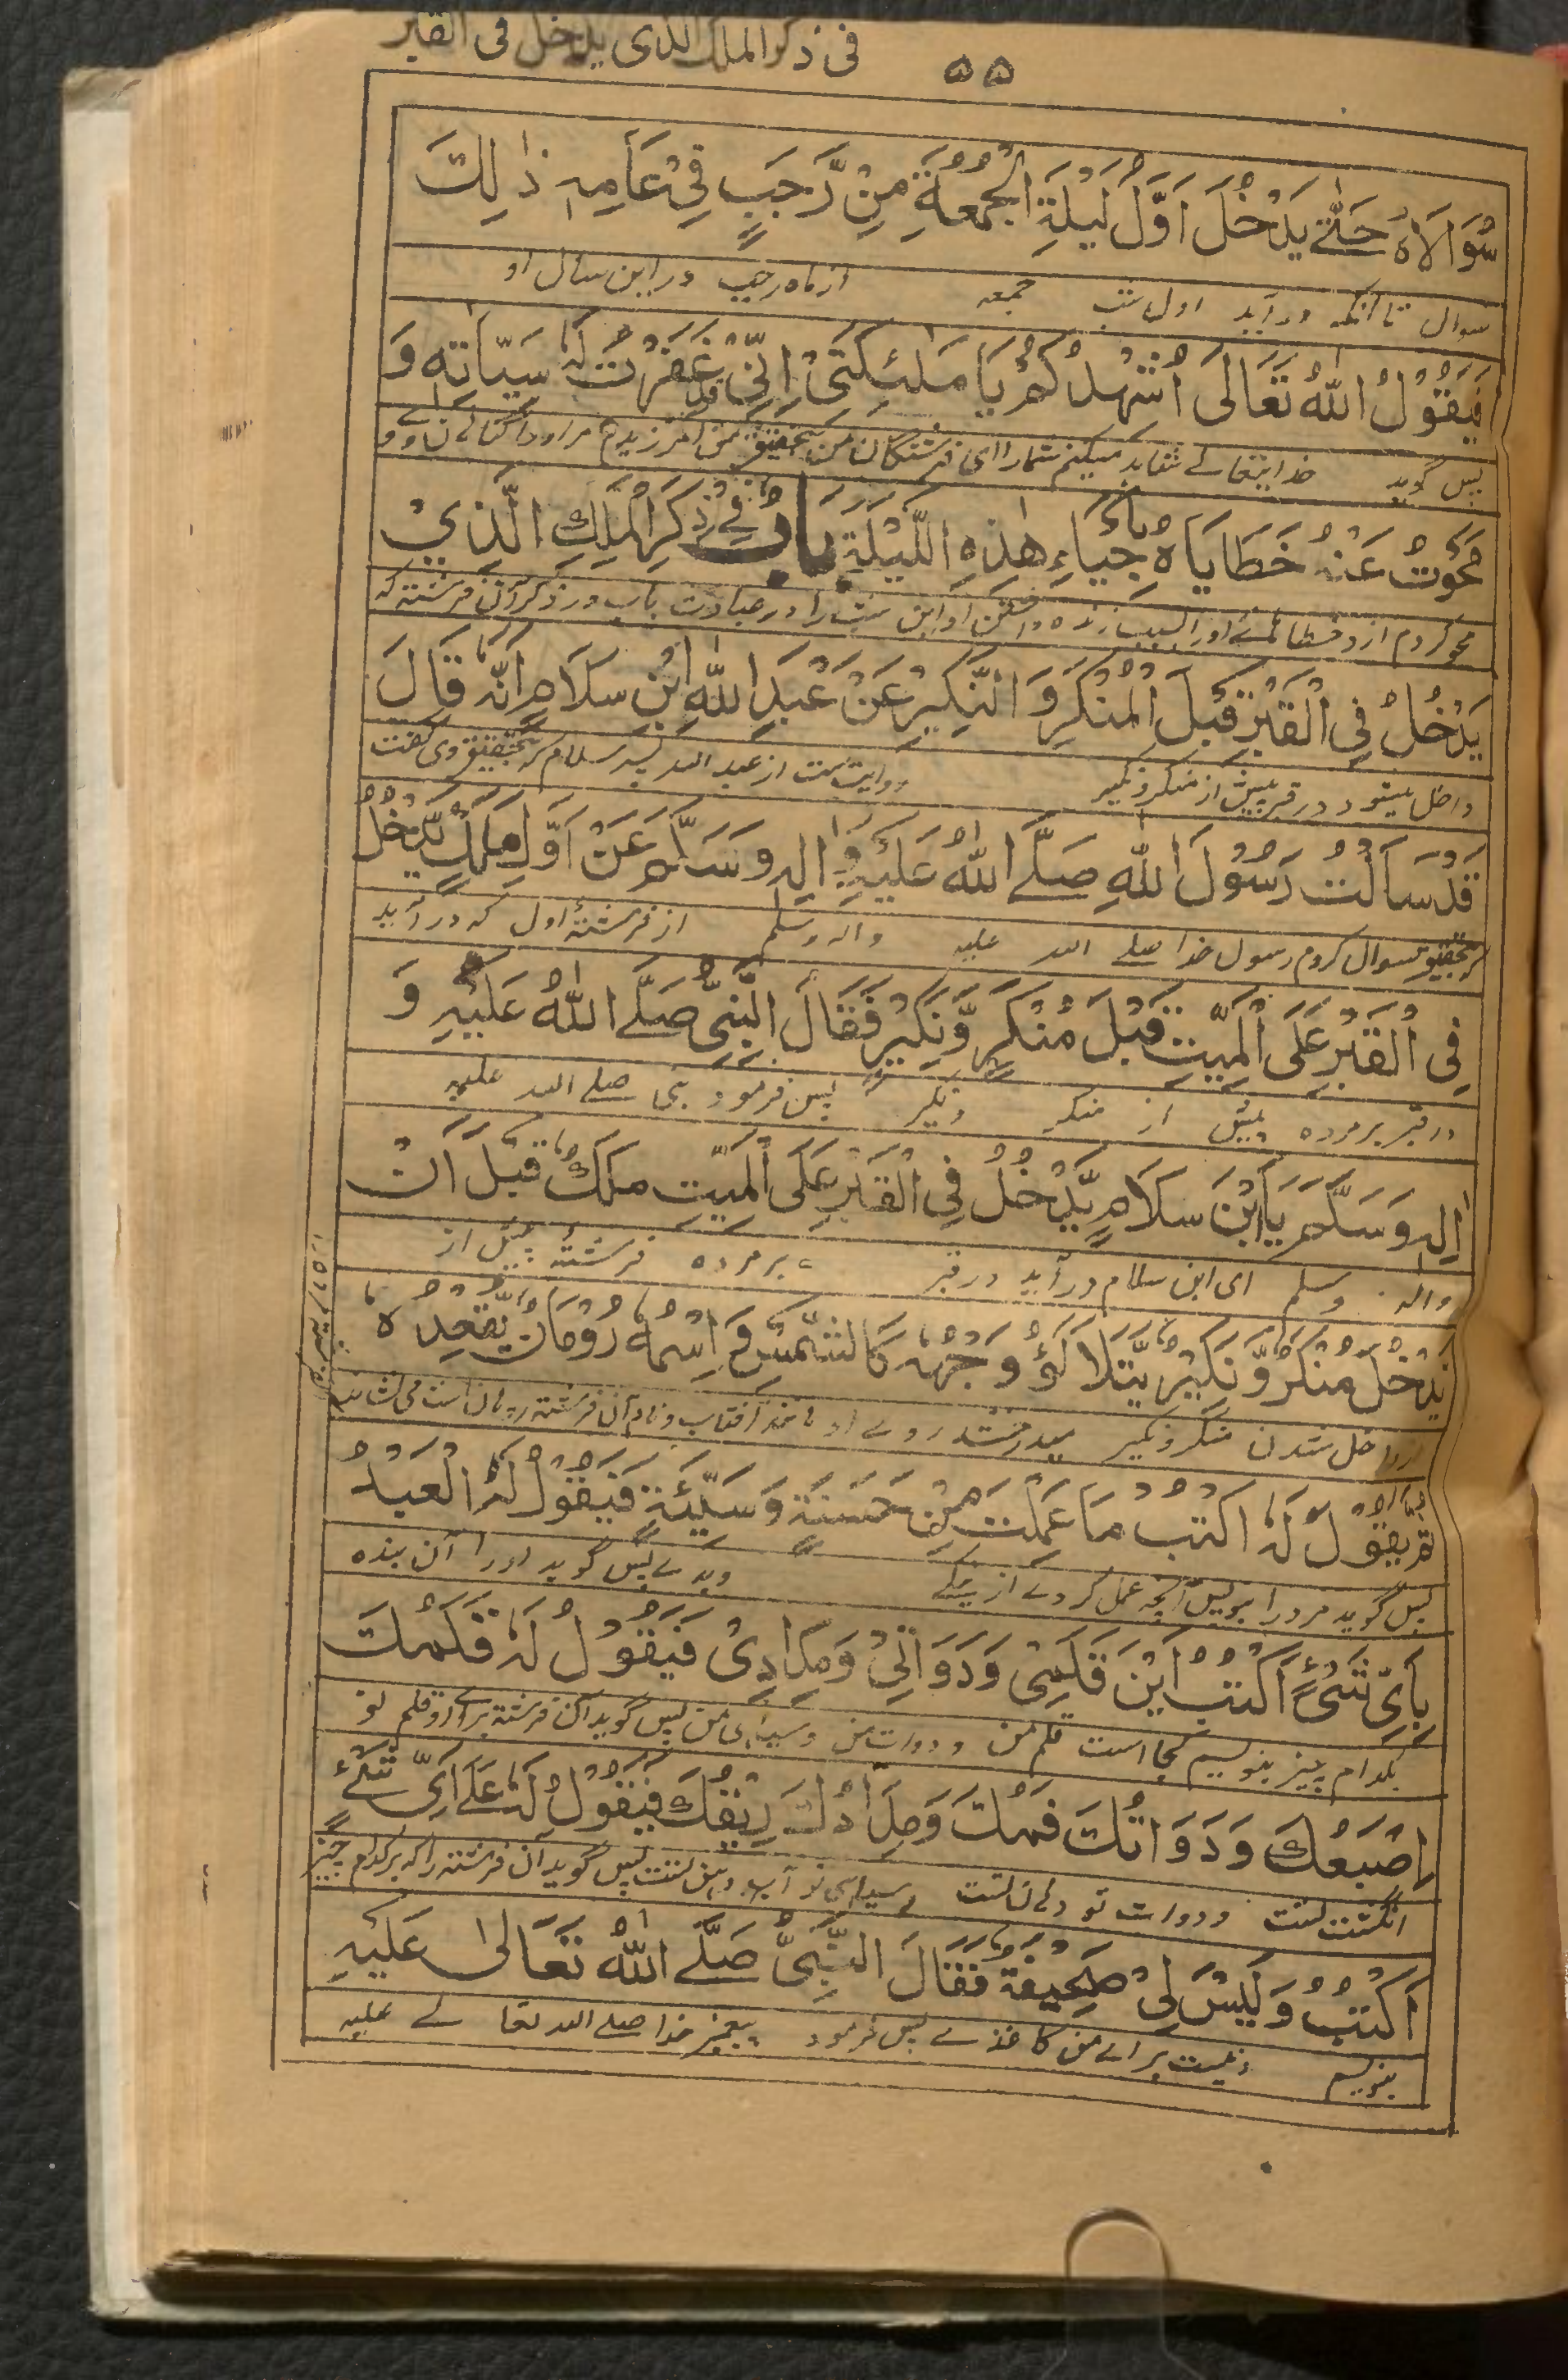 ۵۵ فی ذکر الملک الذی یدخل فی القبر
سُوَالَاهُ حَتّٰی یَدْخُلَ اَوَّلُ لَیْلَةِ الْجُمُعَةِ مِنْ رَّجَبٍ فِیْ عَامِهٖ ذٰلِكَ
سوال تا آنکه در آید اول شب جمعه از ماه رجب در این سال او
فَیَقُوْلُ اللّٰهُ تَعَالٰی اُشْهِدُكُمْ یَا مَلٰئِكَتِیْ اِنِّیْ قَدْ غَفَرْتُ لَهٗ سَیِّاٰتِهٖ وَ
پس گوید خدایتعالے شاهد میکنم شما را ای فرشتگان من بتحقیق من آمرزیدم مر او را گناهان وے و
مَحَوْتُ عَنْهُ خَطَایَاهُ بِاِحْیَاءِ هٰذِهِ اللَّیْلَةِ بَابٌ فِیْ ذِكْرِ الْمَلَكِ الَّذِیْ
محو کردم از و خطائهائے او را بسبب زنده داشتن او این شب را در عبادت باب در ذکر آن فرشته که
یَدْخُلُ فِی الْقَبْرِ قَبْلَ الْمُنْكَرِ وَ النَّكِیْرِ عَنْ عَبْدِ اللّٰهِ ابْنِ سَلَامٍ اَنَّهٗ قَالَ
داخل میشود در قبر پیش از منکر و نکیر روایت ست از عبد الله پسر سلام که بتحقیق وی گفت
قَدْ سَاَلْتُ رَسُوْلَ اللّٰهِ صَلَّے اللّٰهُ عَلَیْهِ وَ اٰلِهٖ وَسَلَّمَ عَنْ اَوَّلِ مَلَكٍ یَّدْخُلُ
بتحقیق سوال کردم رسول خدا صلے الله علیه و اله وسلم از فرشتۀ اول که در آید
فِی الْقَبْرِ عَلَی الْمَیِّتِ قَبْلَ مُنْكَرٍ وَّنَكِیْرٍ فَقَالَ النَّبِیُّ صَلَّے اللّٰهُ عَلَیْهِ وَ
در قبر بر مرده پیش از منکر ونکیر پس فرمود نبی صلے الله علیه
اٰلِهٖ وَسَلَّمَ یَا ابْنَ سَلَامٍ یَّدْخُلُ فِی الْقَبْرِ عَلَی الْمَیِّتِ مَلَكٌ قَبْلَ اَنْ
واله وسلم ای ابن سلام در آید در قبر بر مرده فرشتۀ پیش از
یَّدْخُلَ مُنْكَرٌ وَّنَكِیْرٌ یَّتَلَاْلَؤُ وَجْهُهٗ كَالشَّمْسِ وَ اِسْمُهٗ رُوْمَانُ یُقْعِدُهٗ
داخل شدن منکر ونکیر میدرخشد روے او مانند آفتاب و نام آن فرشته رومان است می نشاند
ثُمَّ یَقُوْلُ لَهٗ اكْتُبْ مَا عَمِلْتَ مِنْ حَسَنَةٍ وَ سَیِّئَةٍ فَیَقُوْلُ لَهُ الْعَبْدُ
پس گوید مر و را بنویس آنچه عمل کردے از نیکے وبدے پس گوید او را آن بنده
بِاَیِّ شَیْءٍ اَكْتُبُ اَیْنَ قَلَمِیْ وَ دَوَاتِیْ وَ مِدَادِیْ فَیَقُوْلُ لَهٗ قَلَمُكَ
بکدام چیز بنویسم کجا است قلم من و دوات من و سیاہی من پس گوید آن فرشته قلم تو
اِصْبَعُكَ وَ دَوَاتُكَ فَمُكَ وَ مِدَادُكَ رِیْقُكَ فَیَقُوْلُ لَهٗ عَلٰے اَیِّ شَیْءٍ
انگشت تست و دوات تو دہان تست و سیاہی تو آب دہن تست پس گوید آن فرشته را که بر کدام چیز
اَكْتُبُ وَ لَیْسَ لِیْ صَحِیْفَةٌ فَقَالَ النَّبِیُّ صَلَّے اللّٰهُ تَعَالٰی عَلَیْهِ
بنویسم ونیست برائے من کاغذے پس فرمود پیغمبر خدا صلے الله تعالے علیه